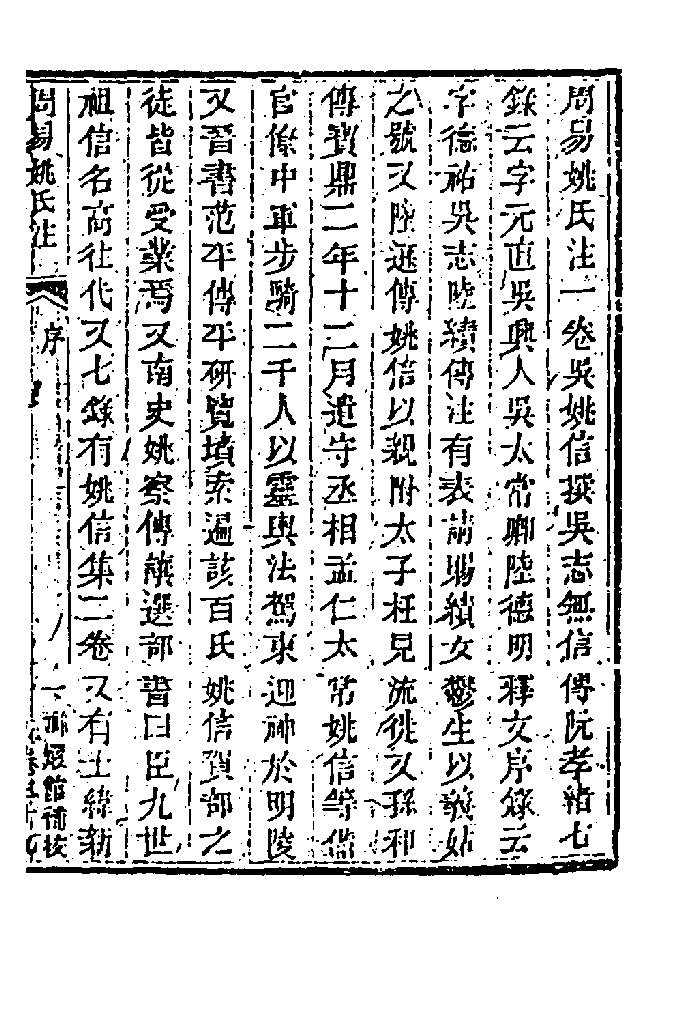 周易姚氏注一卷吳姚信撰吳志無信傳阮孝緒七
錄云字元直吳興人吳太常卿陸德明釋文序錄云
字德祐吳志陸績傳注有表請賜績女鬱生以義姑
之號又陸遜傳姚信以親附太子枉見流徙又孫和
傳寶鼎二年十二月遣守丞相孟仁太常姚信等備
官僚中軍步騎二千人以靈輿法駕東迎神於明陵
又晉書范平傳平研覽墳索遍該百氏姚信賀邵之
徒皆從受業焉又南史姚察傳讓選部書曰臣九世
祖信名高往代又七錄有姚信集二卷又有士緯新
周易姚氏注 序 一 嬛館補校